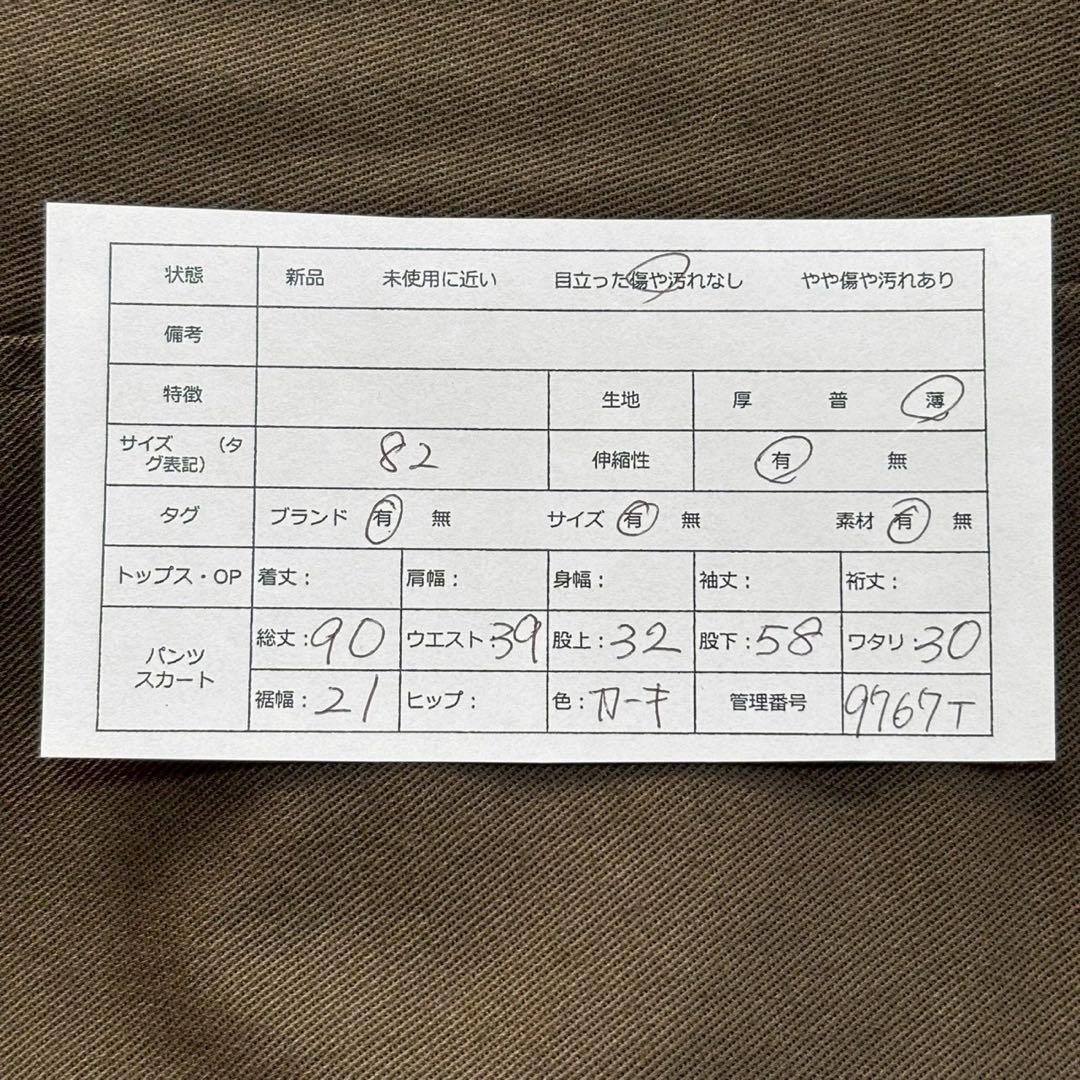 状態 新品 未使用に近い 目立った傷や汚れなし やや傷や汚れあり
備考
特徴 生地 厚 普 薄
サイズ （タグ表記） 82 伸縮性 有 無
タグ ブランド 有 無 サイズ 有 無 素材 有 無
トップス・OP 着丈： 肩幅： 身幅： 袖丈： 裄丈：
パンツ スカート 総丈：90 ウエスト：39 股上：32 股下：58 ワタリ：30
裾幅：21 ヒップ： 色：カーキ 管理番号 9767T